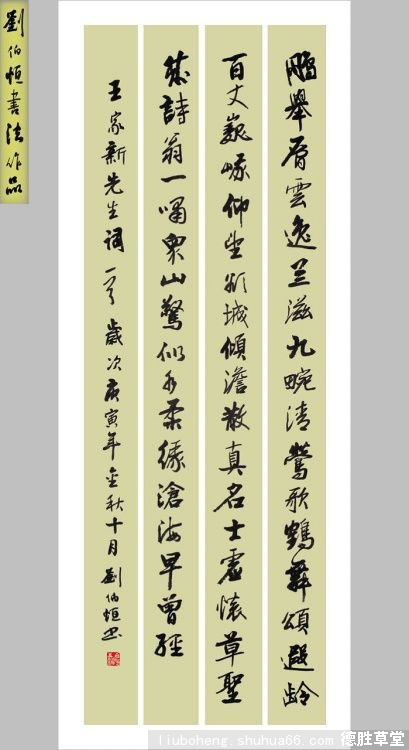 劉伯恒書法作品
鵬舉層雲逸兰滋九畹清鶯歌鶴舞頌遐齡
百丈巍峨仰望城傾澹散真名士虛懷草聖
詩翁一嘯眾山驚似水柔緣滄海早曾經
王家新先生詞一首歲次庚寅年金秋十月劉伯恒書
liuboheng.shuhua66.com
德胜草堂